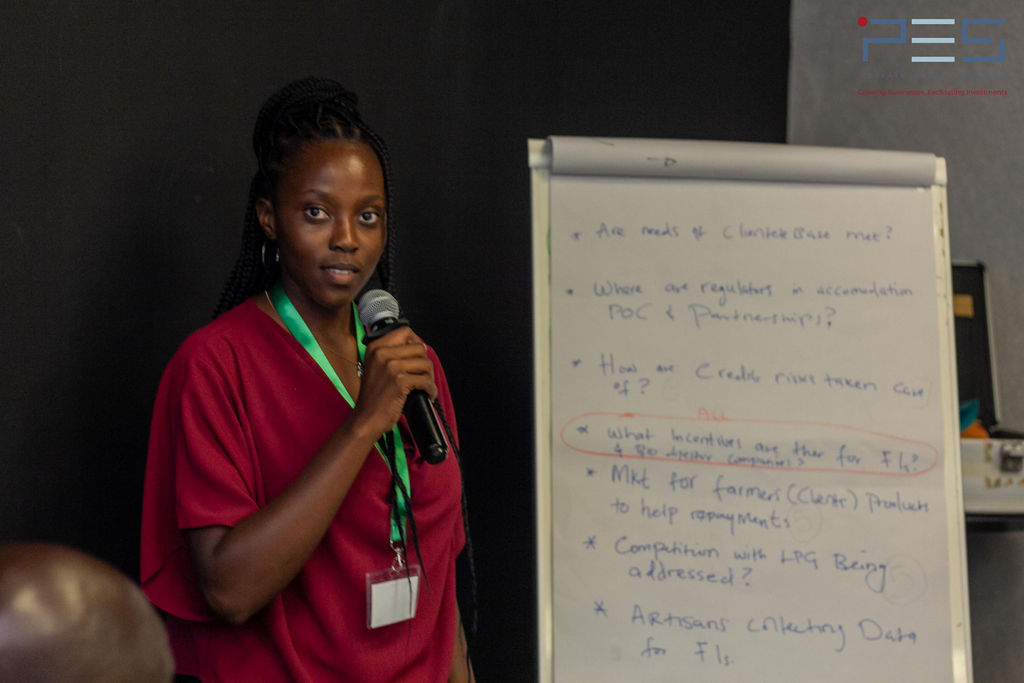 PES
Growing Businesses. Facilitating Investments
* Are needs of Clientele Base met?
* Where are regulators in accomodation
POC & Partnerships?
* How are Credit risks taken care
of?
ALL
* What Incentives are ther for FIs?
& Bio digestor Companies?
* Mkt for farmers (Clients) Products
to help repayments
* Competition with LPG Being
addressed?
* Artisans Collecting Data
for FIs.